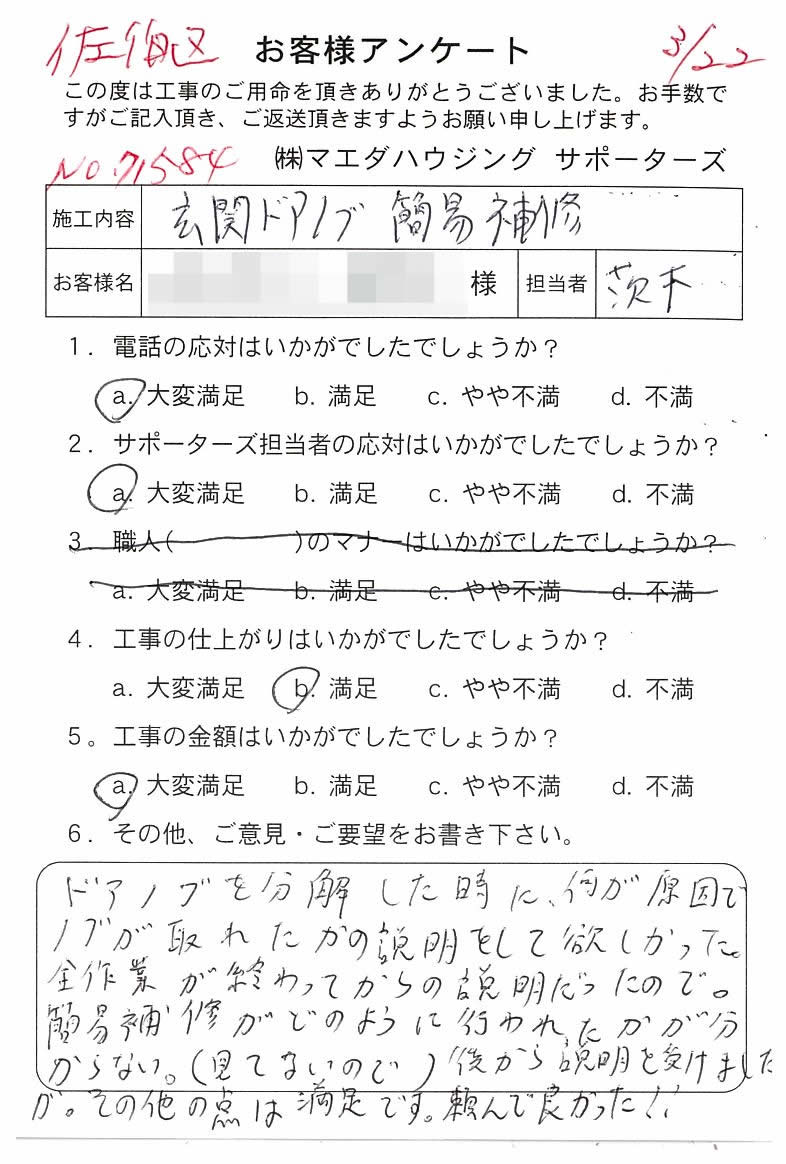 佐伯区 お客様アンケート 3/22
この度は工事のご用命を頂きありがとうございました。お手数で
すがご記入頂き、ご返送頂きますようお願い申し上げます。
No.71584 ㈱マエダハウジング サポーターズ
施工内容 玄関ドアノブ 簡易補修
お客様名 様 担当者 茨木
1. 電話の応対はいかがでしたでしょうか?
a. 大変満足 b. 満足 c. やや不満 d. 不満
2. サポーターズ担当者の応対はいかがでしたでしょうか?
a. 大変満足 b. 満足 c. やや不満 d. 不満
3. 職人( )のマナーはいかがでしたでしょうか?
a. 大変満足 b. 満足 c. やや不満 d. 不満
4. 工事の仕上がりはいかがでしたでしょうか?
a. 大変満足 b. 満足 c. やや不満 d. 不満
5。工事の金額はいかがでしたでしょうか?
a. 大変満足 b. 満足 c. やや不満 d. 不満
6. その他、ご意見・ご要望をお書き下さい。
ドアノブを分解した時に、何が原因で
ノブが取れたかの説明をして欲しかった。
全作業が終わってからの説明だったので。
簡易補修がどのように行われたかが分
からない。(見てないので)後から説明を受けました
が。その他の点は満足です。頼んで良かった!!